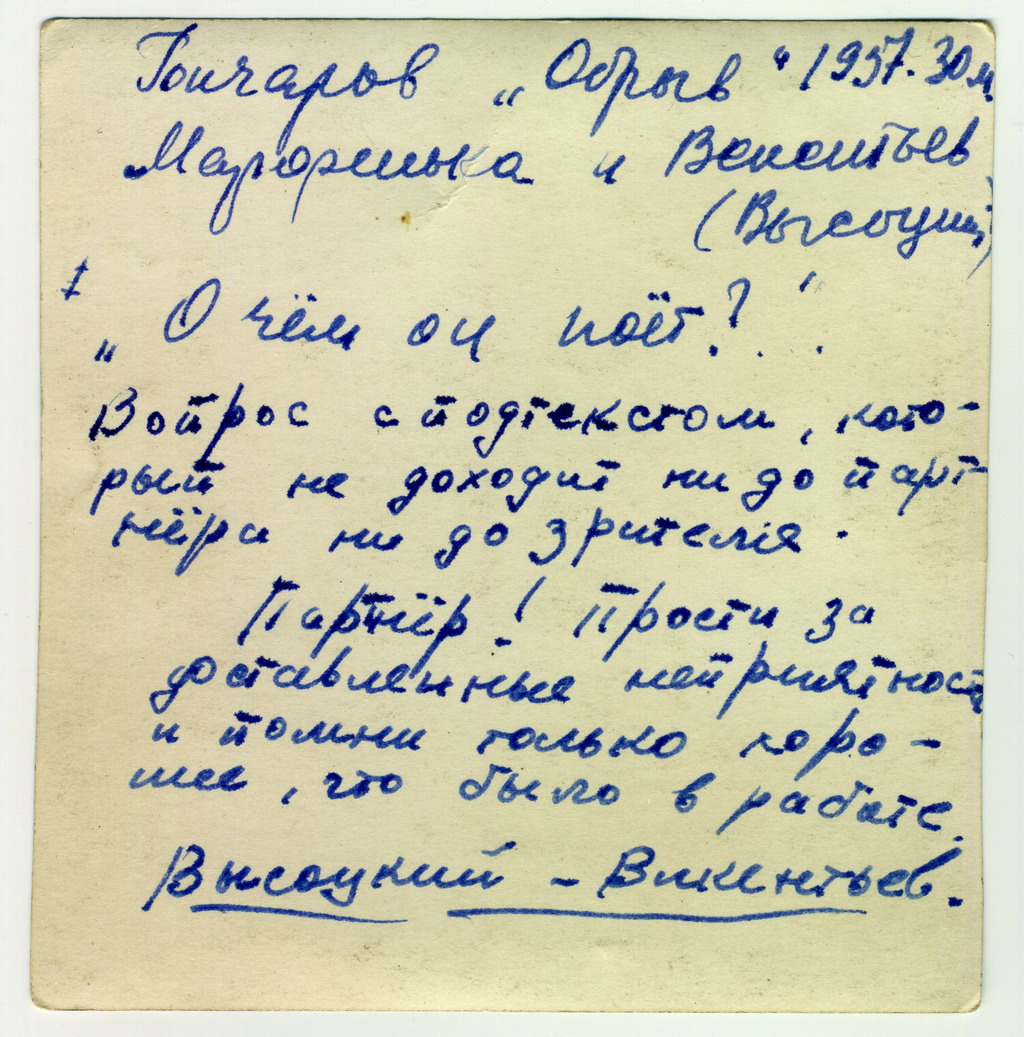 Гончаров „Обрыв" 1957. 30 м.
Марфенька и Викентьев
(Высоцкий)
„О чём он поёт?.."
Вопрос с подтекстом, кото-
рый не доходит ни до парт-
нёра ни до зрителя.
Партнёр! Прости за
доставленные неприятности
и помни только хоро-
шее, что было в работе.
Высоцкий – Викентьев.